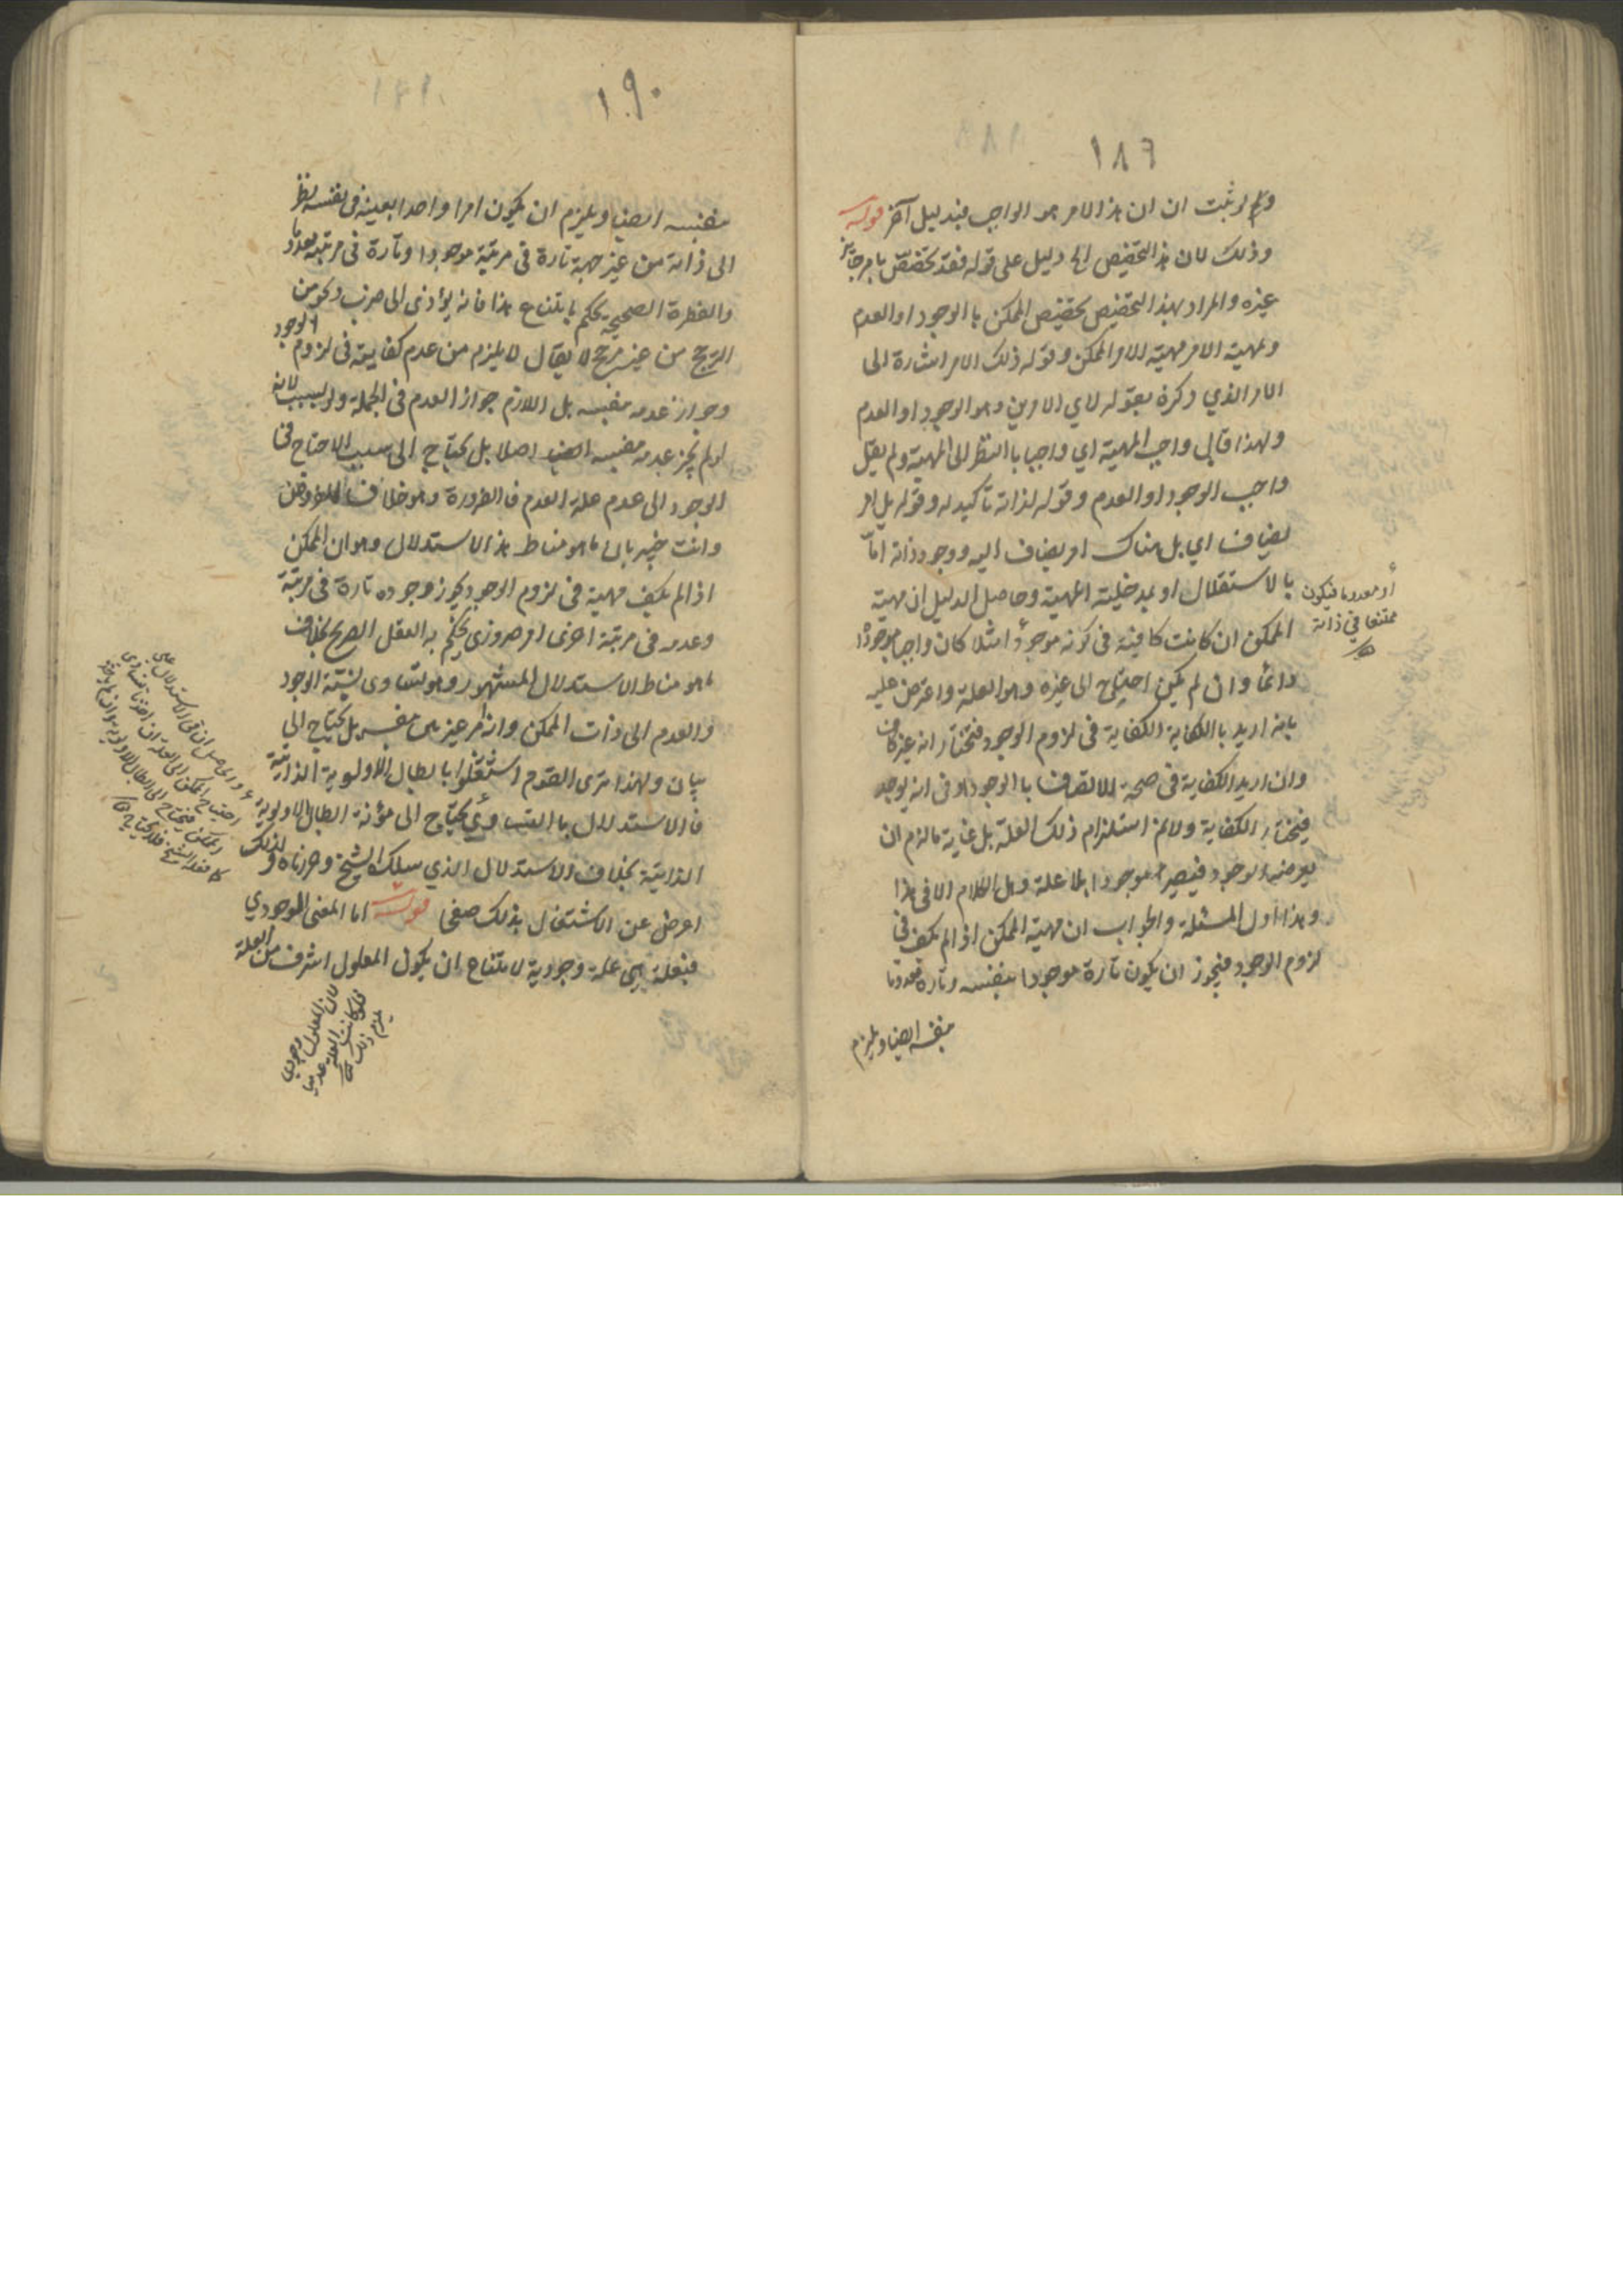 ١٨٦
ولم يثبت ان ان هذا الامر هو الواجب فبدليل آخر قوله
وذلك لان هذا التخصيص الخ دليل على قوله فقد تخصص بامر جائز
غيره والمراد بهذا التخصيص تخصيص الممكن باالوجود او العدم
ومهية الامر مهية الامر الممكن وقوله ذلك الامر اشارة الى
الامر الذي ذكره بقوله لاي الامرين وهو الوجود او العدم
ولهذا قال واجب المهية اي واجبا باالنظر الى المهية ولم يقل
واجب الوجود او العدم وقوله لذاته تأكيد له وقوله بل امر
يضاف اي بل هناك امر يضاف اليه ووجود ذاته اما
بالاستقلال او بمدخلية المهية وحاصل الدليل ان مهية
الممكن ان كانت كافية في كونه موجودا مثلا كان واجبا موجودا
دائما وان لم يكن احتاج الى غيره وهو العلة واعترض عليه
بانه اريد باالكفاية الكفاية في لزوم الوجود فنختار انه غير كاف
وان اريد الكفاية في صحة الاتصاف باالوجود او في انه يوجد
فيختار الكفاية ولا نم استلزام ذلك العلة بل غاية مالزم ان
يعرضه الوجود فيصير موجودا بلا علة وهل الكلام الا في هذا
وهذا اول المسئلة والجواب ان مهية الممكن اذا لم تكف في
لزوم الوجود فيجوز ان يكون تارة موجودا بنفسه وتارة معدوما
بنفسه ايضا ويلزم
أو معدوما فيكون
ممتنعا في ذاته
١٩٠
بنفسه ايضا ويلزم ان يكون امرا واحدا بعينه في نفسه نظر
الى ذاته من غير جهة تارة في مرتبة موجودا وتارة في مرتبة معدوما
والفطرة الصحيحة يحكم بامتناع هذا فانه يؤدى الى ضرب ونحو من
الترجح من غير مرجح لا يقال لا يلزم من عدم كفايته في لزوم الوجود
وجواز عدمه بنفسه بل اللازم جواز العدم في الجملة ولو بسبب لانه
لو لم يجز عدمه بنفسه ايضا اصلا بل يحتاج الى سبب لاحتاج في
الوجود الى عدم علة العدم فاالضرورة وهو خلاف المفروض
وانت خبير بان ما هو مناط هذا الاستدلال وهو ان الممكن
اذا لم يكف مهية في لزوم الوجود يجوز وجوده تارة في مرتبة
وعدمه في مرتبة اخرى امر ضروري يحكم به العقل الصريح بخلاف
ما هو مناط الاستدلال المشهور وهو تساوى نسبة الوجود
والعدم الى ذات الممكن وانه امر غير بين بنفسه بل يحتاج الى
بيان ولهذا ترى القوم اشتغلوا بابطال الاولوية الذاتية
فاالاستدلال باالتساوي يحتاج الى مؤنة ابطال الاولوية
الذاتية بخلاف الاستدلال الذي سلكه الشيخ وحررناه ولذلك
اعرض عن الاشتغال بذلك صفحا قوله اما المعنى الموجودي
فبعلة هي علة وجودية لامتناع ان يكون المعلول اشرف من العلة
لان المعلول وجودي
فلو كانت العلة عدميا
يلزم ذلك